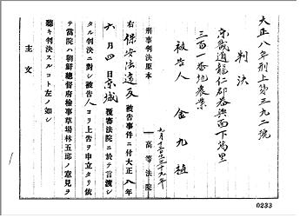 大正八年刑上第三九二號
判決
京畿道龍仁郡
三百一番地農業
被告人 金九植
刑事判決原本
高等法院
右保安法違反被告事件ニ付大正八年
六月四日京城覆審法院ニ於テ言渡シ
タル判決ニ對シ被告人ヨリ上告ヲ申立タリ依
テ當院ハ朝鮮總督府檢事草場林五郎ノ意見ヲ
聽キ判決スルコト左ノ如シ
主文
0233